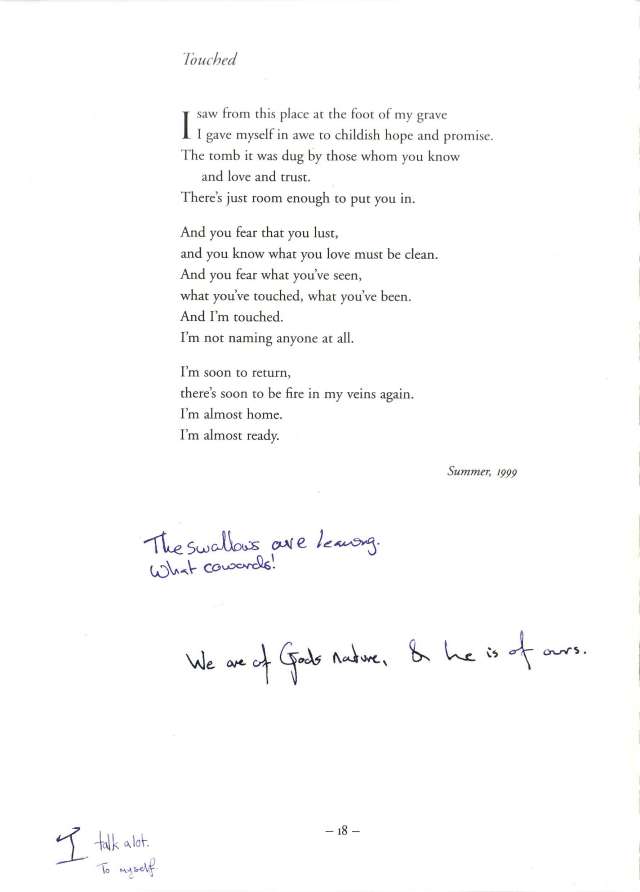 Touched
I saw from this place at the foot of my grave
I gave myself in awe to childish hope and promise.
The tomb it was dug by those whom you know
and love and trust.
There's just room enough to put you in.
And you fear that you lust,
and you know what you love must be clean.
And you fear what you've seen,
what you've touched, what you've been.
And I'm touched.
I'm not naming anyone at all.
I'm soon to return,
there's soon to be fire in my veins again.
I'm almost home.
I'm almost ready.
Summer, 1999
The swallows are leaving.
What cowards!
We are of Gods nature, & he is of ours.
– 18 –
I talk a lot.
To myself